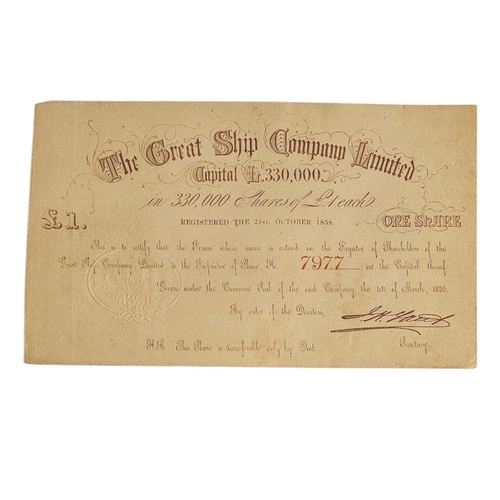 The Great Ship Company Limited
Capital £.330,000.
in 330,000 Shares of £1 each,
REGISTERED THE 21st. OCTOBER 1858.
£1.
ONE SHARE
This is to certify that the Person whose name is entered in the Register of Shareholders of the
Great Ship Company Limited is the Proprietor of Share, No. 7977 in the Capital thereof
Given under the Common Seal of the said Company, the 1st of March, 1859.
By order of the Directors,
Secretary.
N.B. This Share is transferable only by Deed.